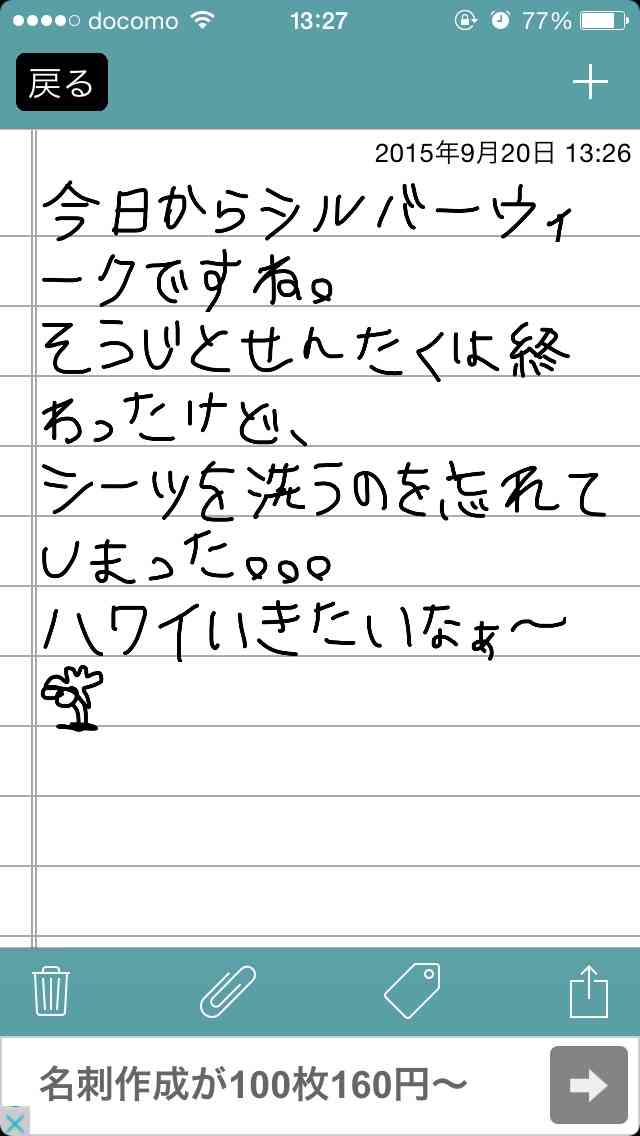 docomo 13:27 77%
戻る
2015年9月20日 13:26
今日からシルバーウィ
ークですね。
そうじとせんたくは終
わったけど、
シーツを洗うのを忘れて
しまった。。。
ハワイいきたいなぁ〜
名刺作成が100枚160円〜